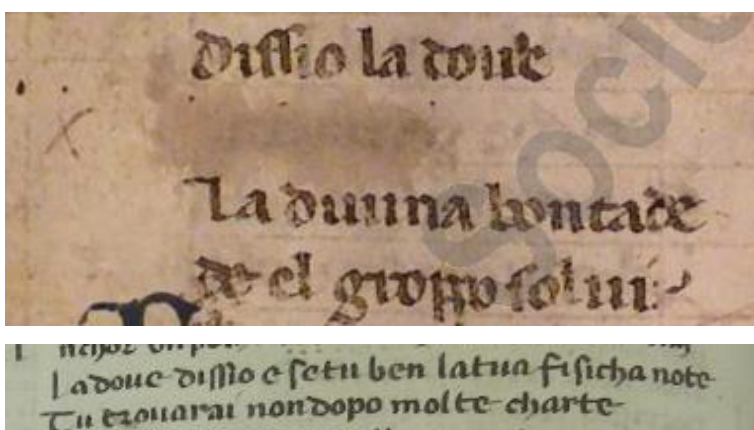 dissio la doue
La diuina bontade
de el groppo solui
Socie
ladoue dissio e setu ben latua fisicha note
Tu trouarai non dopo molte charte